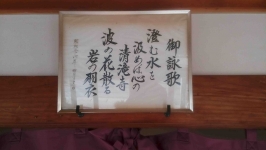 御詠歌
澄む水を
汲めば心の
清滝寺
波の花散る
岩の羽衣